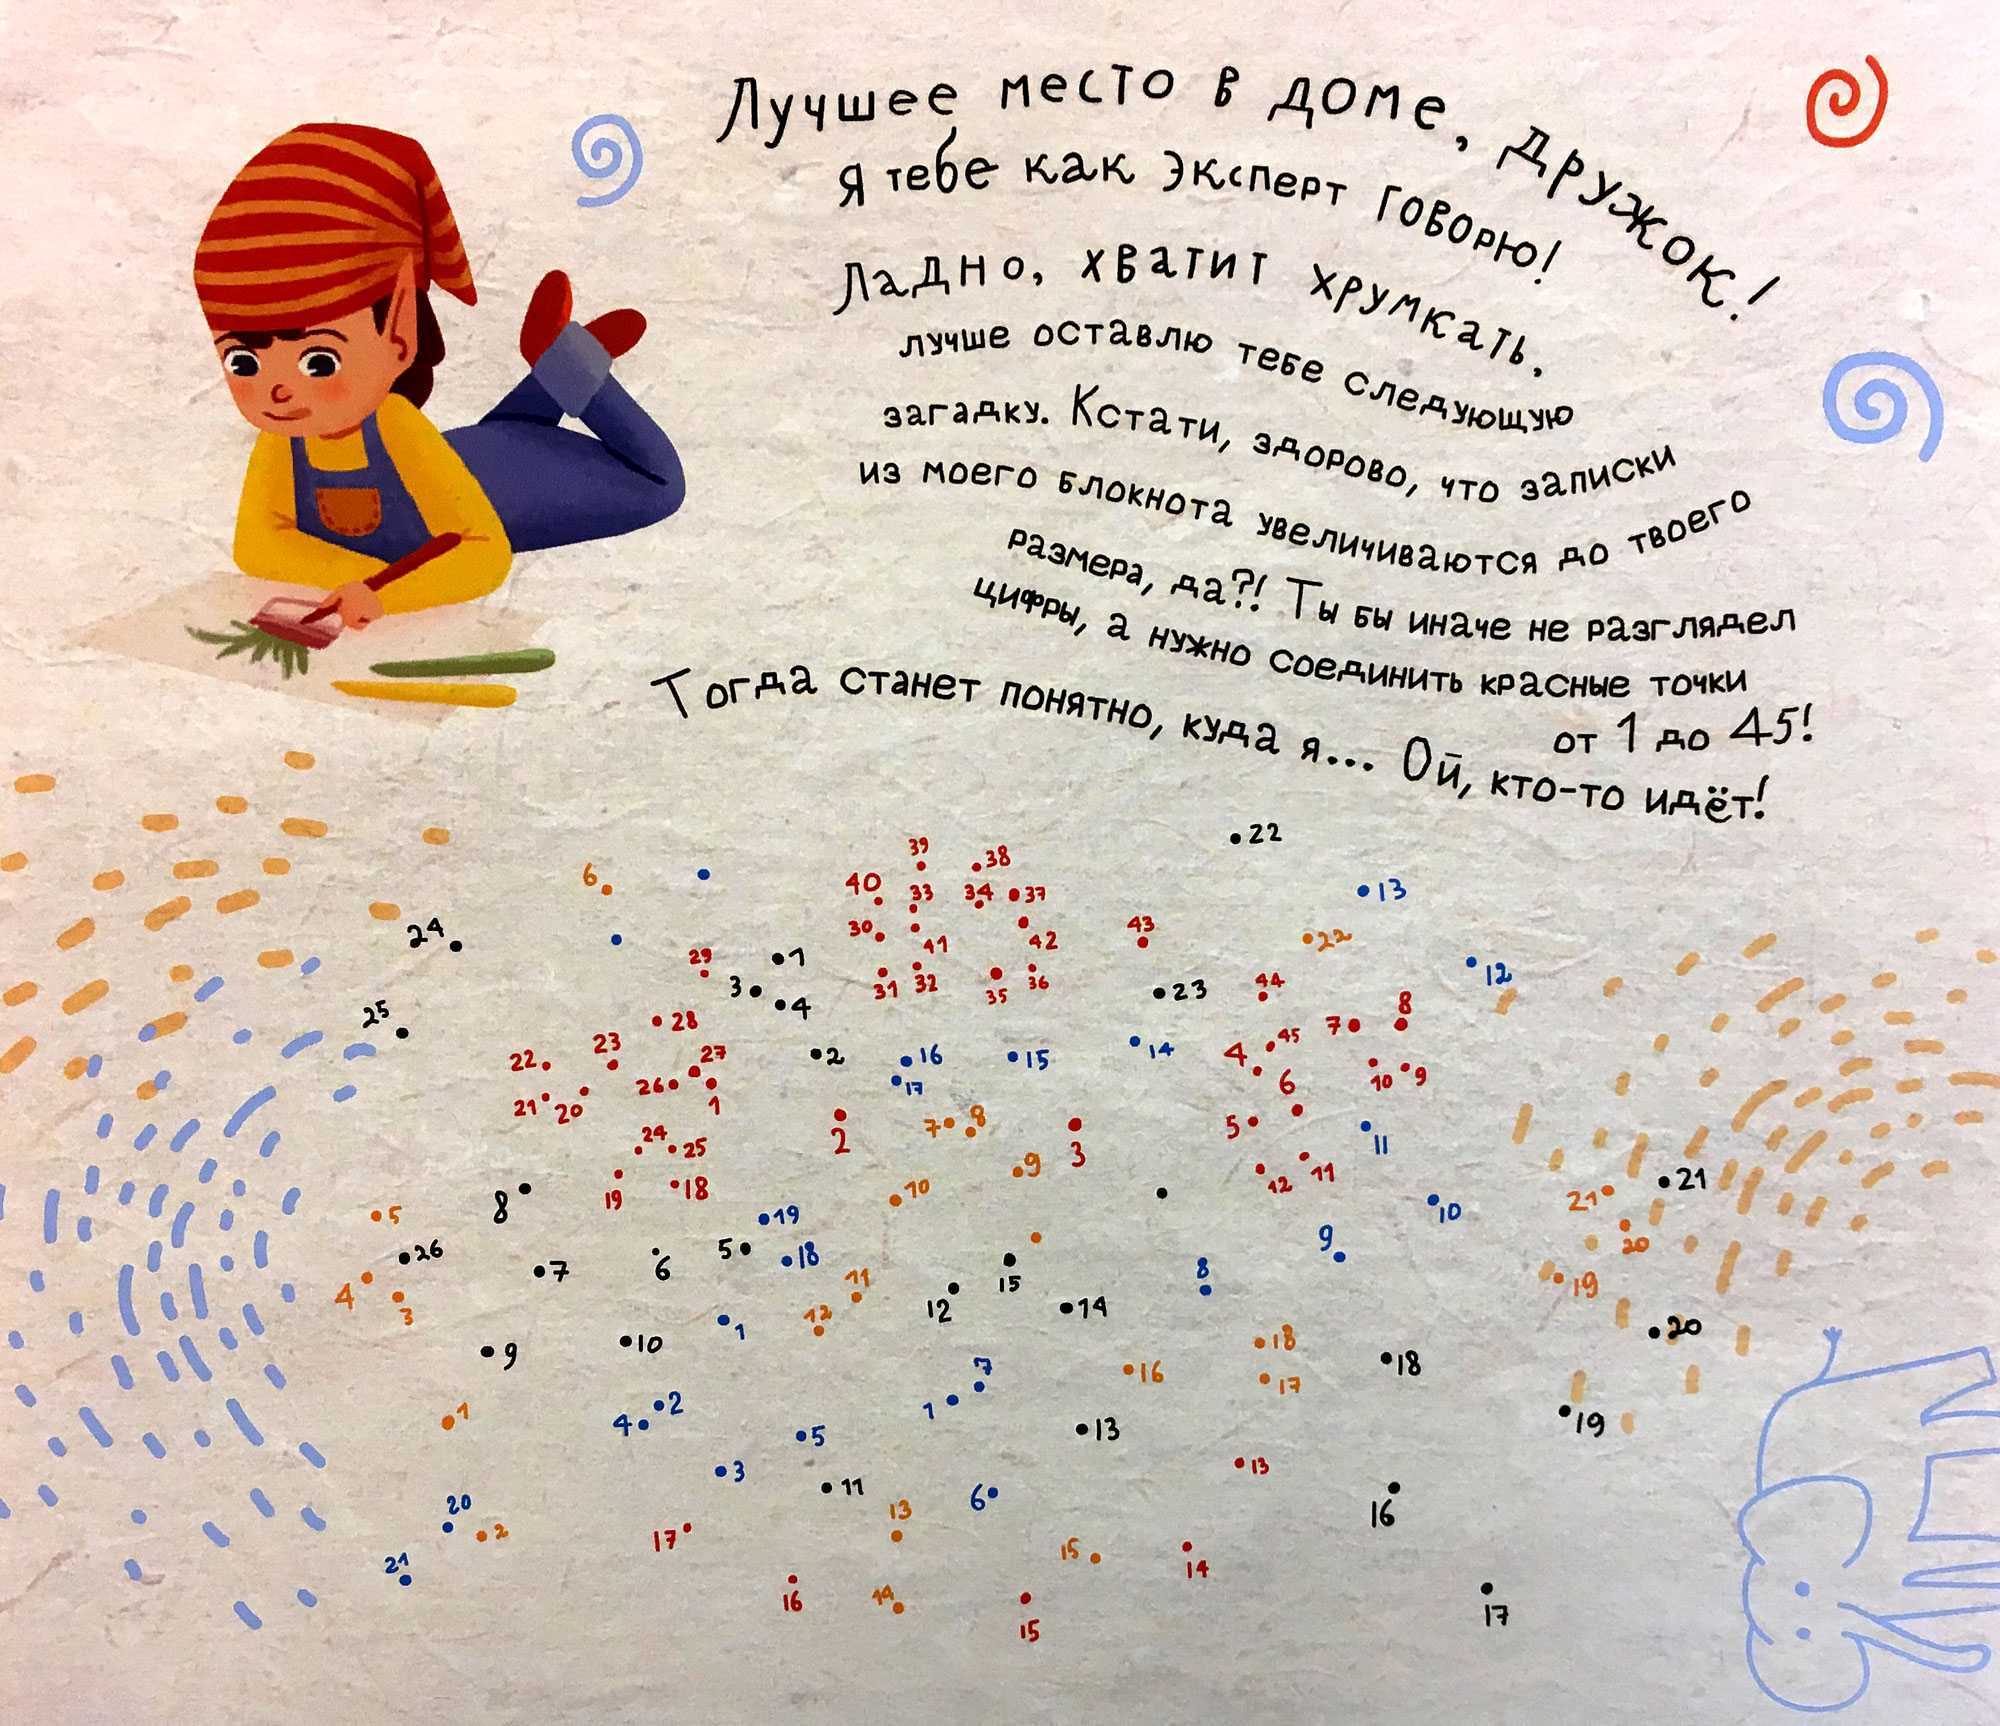 Лучшее место в доме, дружок!
Я тебе как эксперт говорю!
Ладно, хватит хрумкать,
лучше оставлю тебе следующую
загадку. Кстати, здорово, что записки
из моего блокнота увеличиваются до твоего
размера, да?! Ты бы иначе не разглядел
цифры, а нужно соединить красные точки
от 1 до 45!
Тогда станет понятно, куда я... Ой, кто-то идёт!
22
39 38
40 33 34 37 13
6
24 30 41 42 43 22
29 1 12
3 31 32 35 36 23 44
25 4 8
28 7
23 27 2 16 15 14 45
22 26 17 4 6 10 9
21 20 1
7 8 5
24 25 2 3 11
9 12 11
19 18 10 21
8 21
5 19 10
26 5 18 9 20
7 6 11 8 19
4 15
3 12 14
12 20
1 18
9 10 16 18
7 17
1 2 1 19
4 5 13
3 13
11 6
20 2 13 16
17 15
21 14
16 14 17
15